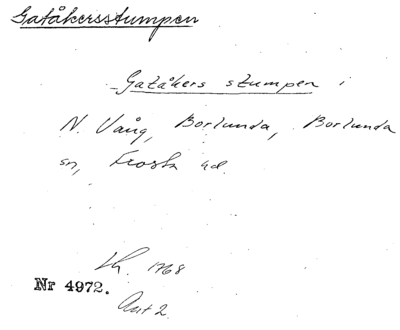 Gatåkersstumpen
Gatåkers stumpen i
N. Vång, Borlunda, Borlunda
sn, Frosta hd.
Lh. 1768
Nr 4972.
Akt 2.